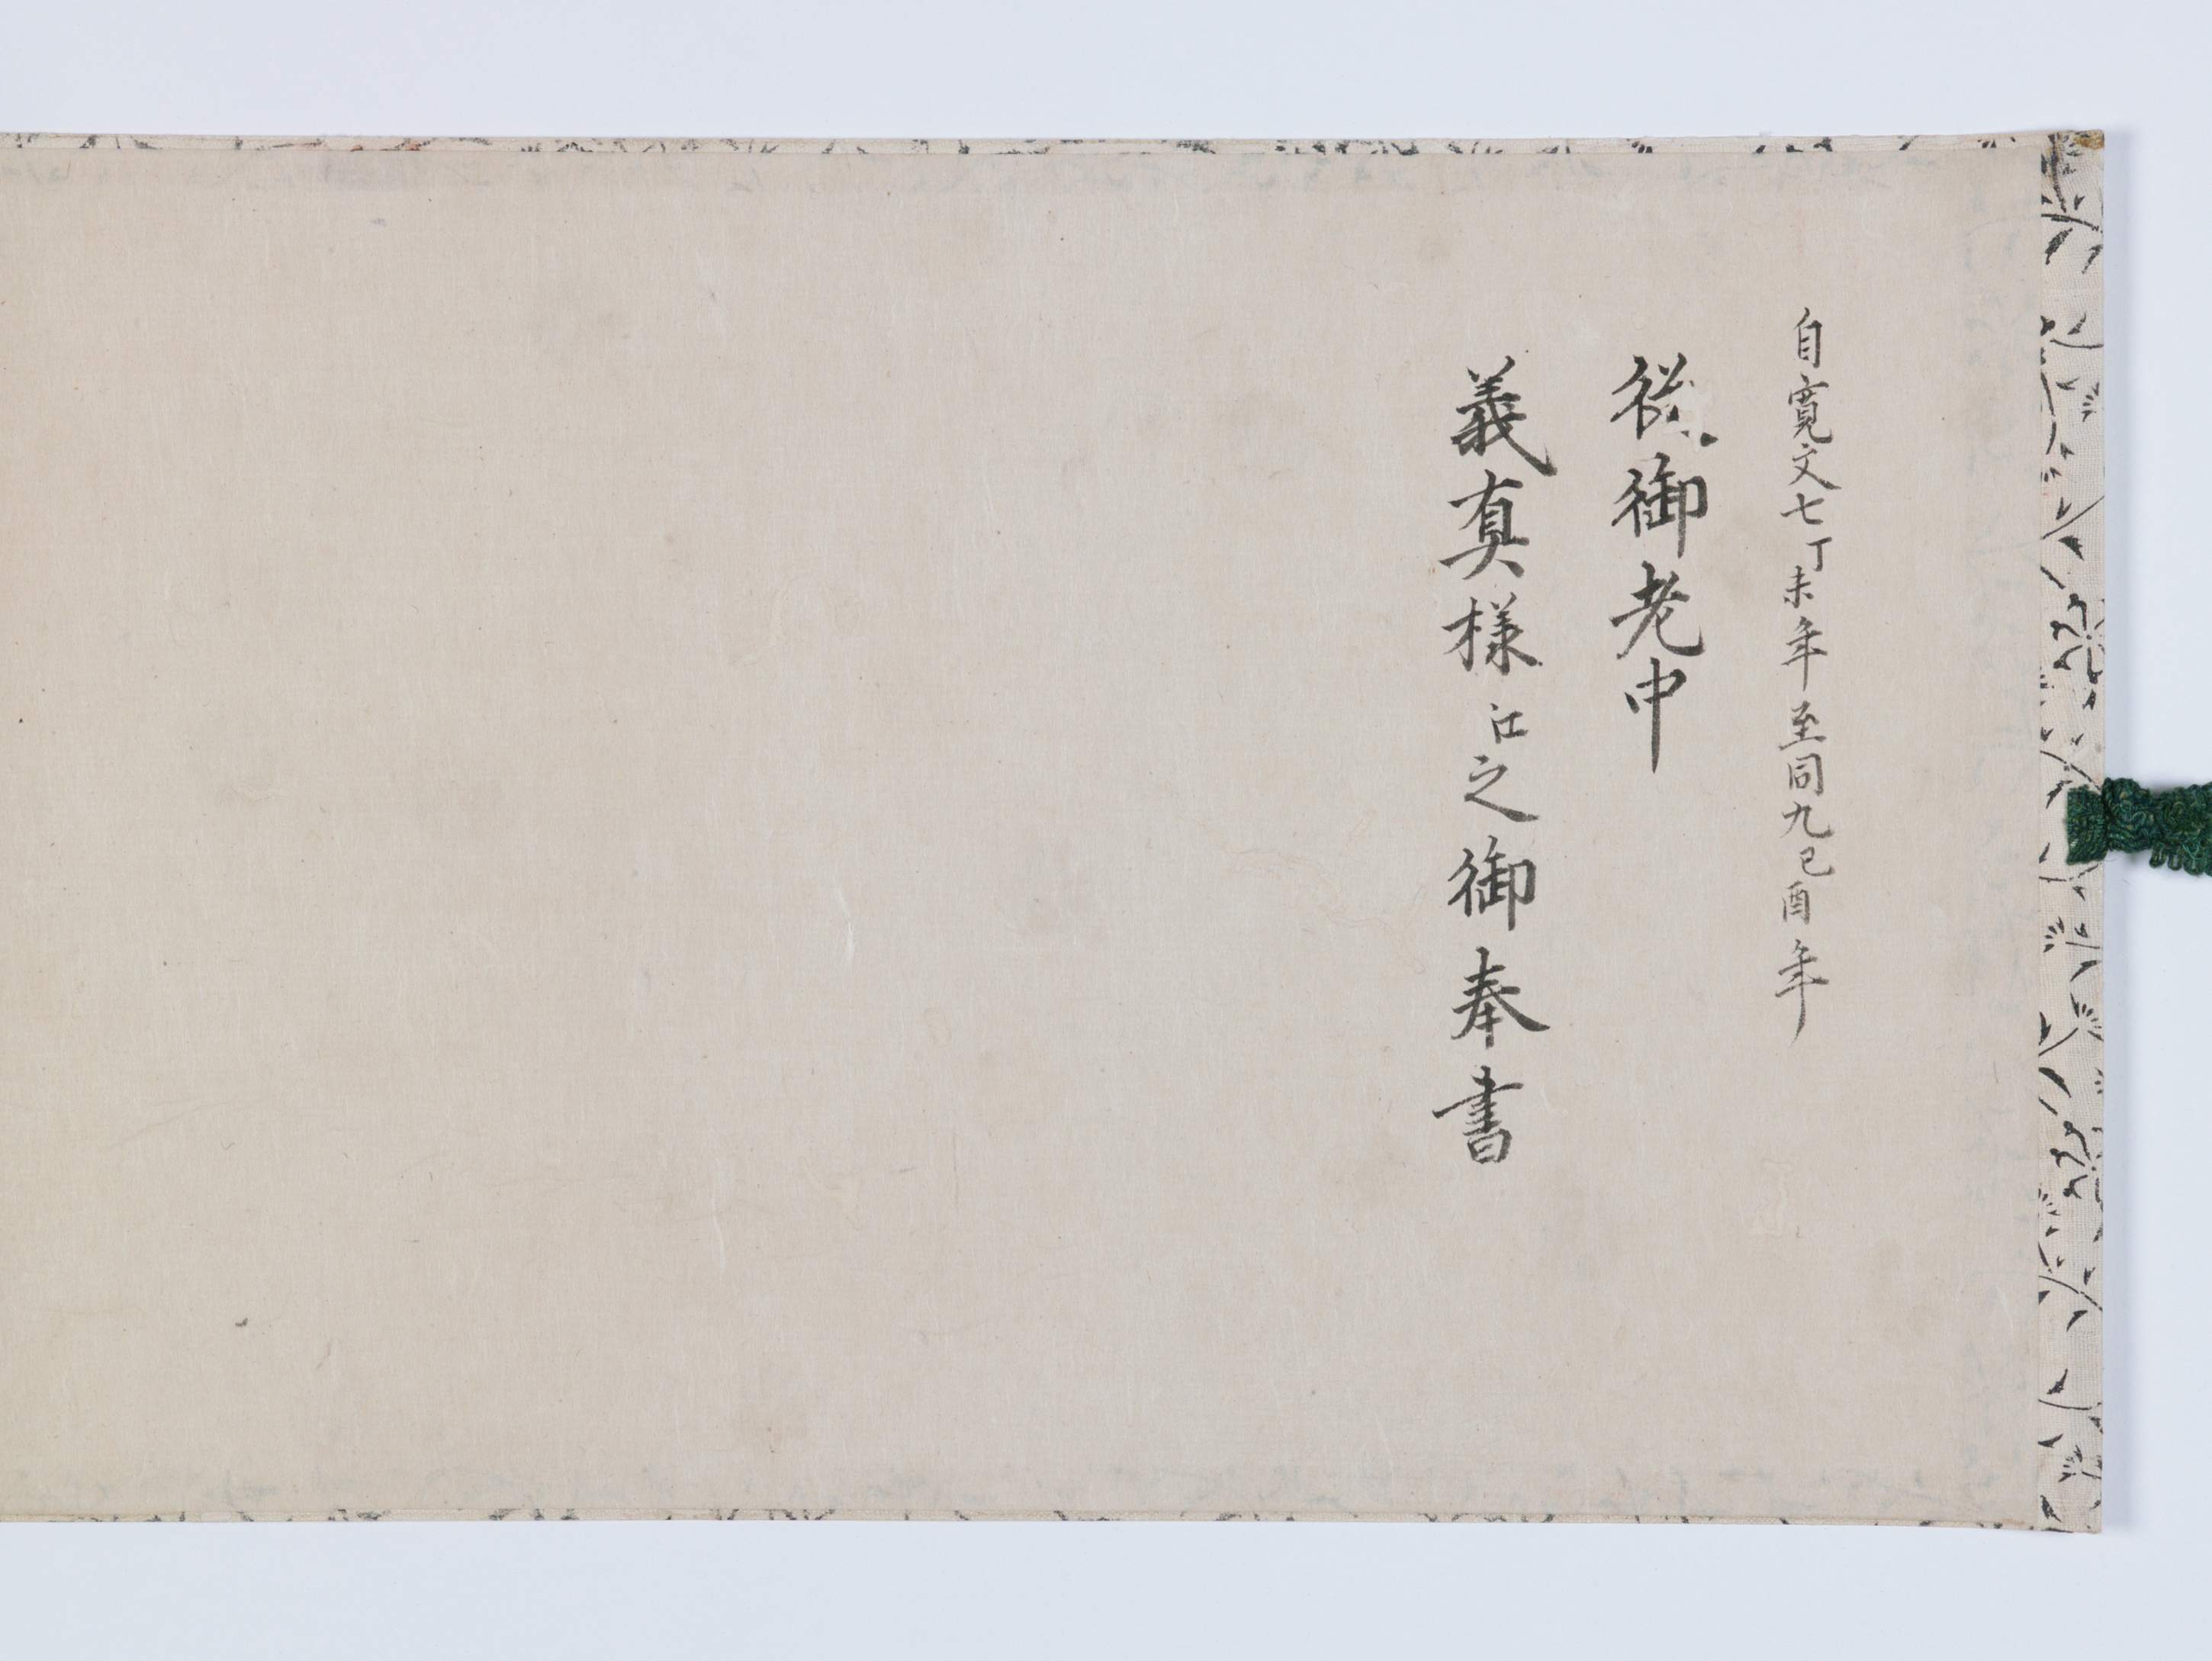 自寛文七丁未年至同九己酉年
從御老中
義真様江之御奉書